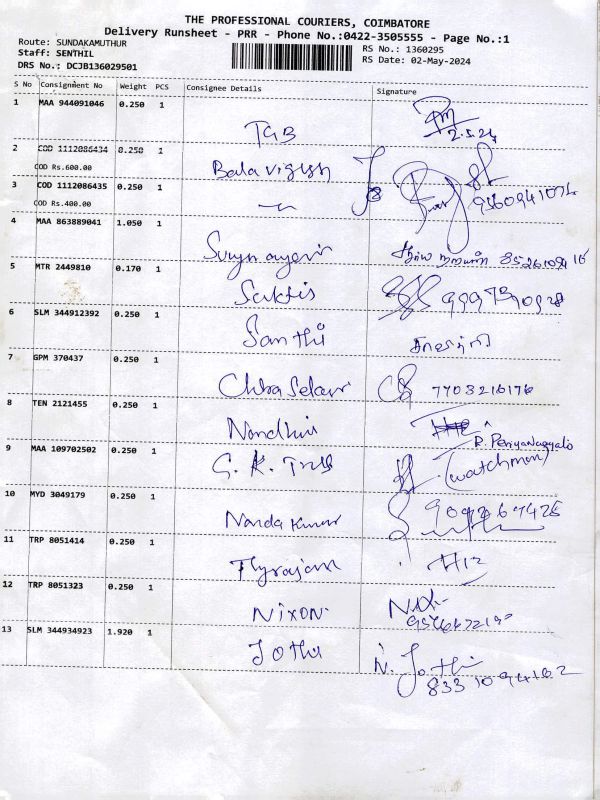 THE PROFESSIONAL COURIERS, COIMBATORE
Delivery Runsheet - PRR - Phone No.:0422-3505555 - Page No.:1
Route: SUNDAKAMUTHUR
Staff: SENTHIL
DRS No.: DCJB136029501
RS No.: 1360295
RS Date: 02-May-2024
S No Consignment No Weight PCS Consignee Details Signature
1 MAA 944091046 0.250 1
TGB 2.5.24
2 COD 1112086434 0.250 1
COD Rs.600.00 Bala vignesh
3 COD 1112086435 0.250 1
COD Rs.400.00
4 MAA 863889041 1.050 1
5 MTR 2449810 0.170 1
Sakthi
6 SLM 344912392 0.250 1
Santhi
7 GPM 370437 0.250 1
7703216176
8 TEN 2121455 0.250 1
Nandhini
9 MAA 109702502 0.250 1
G. K. (watchman)
10 MYD 3049179 0.250 1
Nanda Kumar
11 TRP 8051414 0.250 1
12 TRP 8051323 0.250 1
NIXON
13 SLM 344934923 1.920 1
Jothi N. Jothi